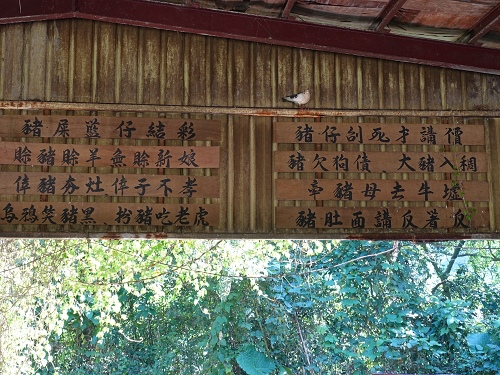 豬屎籃仔結彩
賒豬賒羊無賒新娘
倖豬夯灶倖子不孝
烏鴉笑豬黑 扮豬吃老虎
豬仔刣死才講價
豬欠狗債 大豬入稠
牽豬母去牛墟
豬肚面講反著反